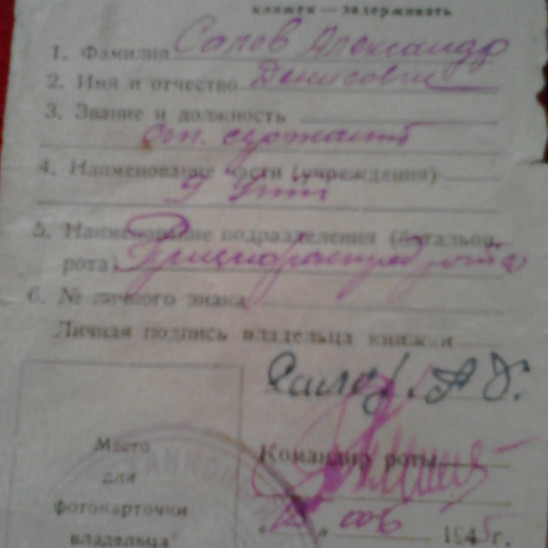 книжек — задерживать
1. Фамилия Салов Александр
2. Имя и отчество Денисович
3. Звание и должность
ст. сержант
4. Наименование части (учреждения)
9
5. Наименование подразделения (батальон,
рота) рота
6. № личного знака
Личная подпись владельца книжки
Салов А Д.
Место
для
фотокарточки
владельца
Командир роты
1945 г.